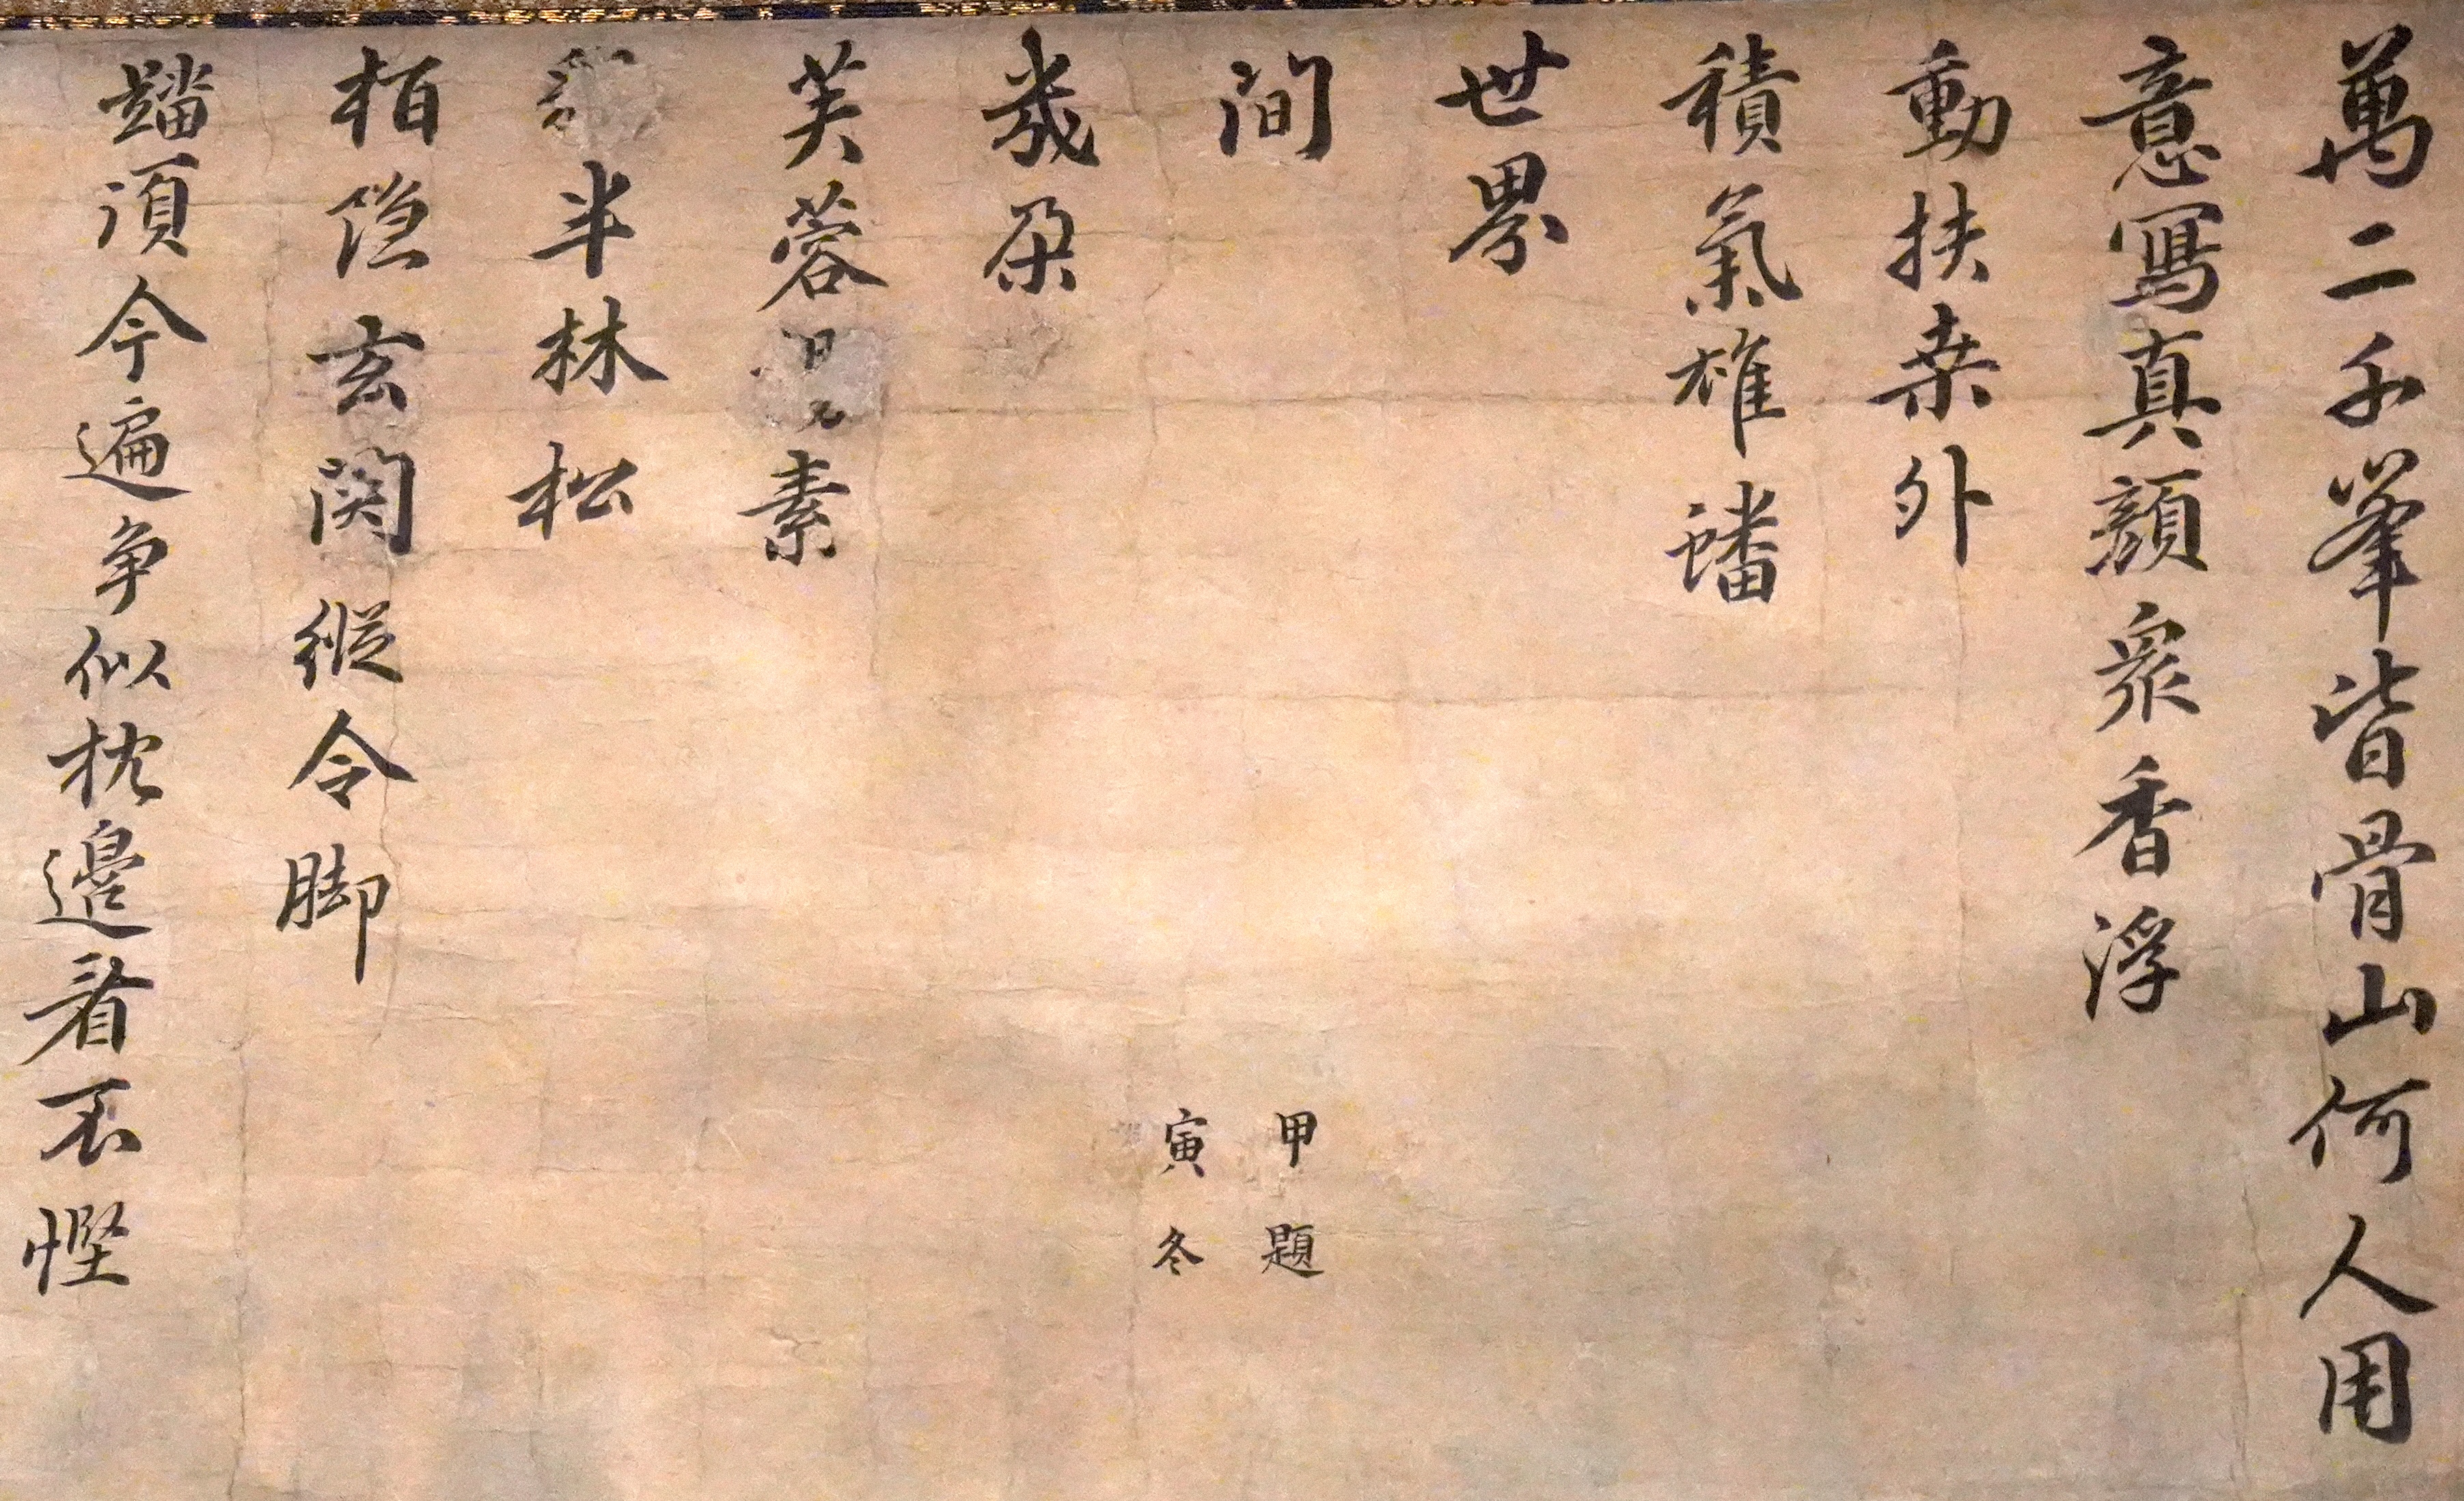 萬二千峯皆骨山何人用
意寫真顔衆香浮
動扶桑外
積氣雄蟠
世界
間
幾朶
芙蓉素
半林松
栢隐玄関縱令脚
踏須今遍争似枕邊看不慳
甲寅
冬題